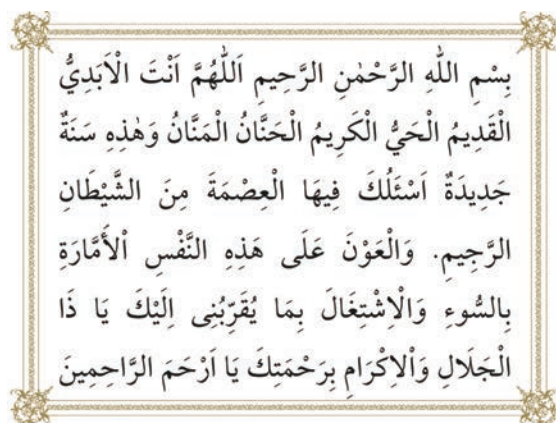 بِسْمِ اللهِ الرَّحْمٰنِ الرَّحِيمِ اَللّٰهُمَّ اَنْتَ الْاَبَدِيُّ
الْقَدِيمُ الْحَيُّ الْكَرِيمُ الْحَنَّانُ الْمَنَّانُ وَهٰذِهِ سَنَةٌ
جَدِيدَةٌ اَسْئَلُكَ فِيهَا الْعِصْمَةَ مِنَ الشَّيْطَانِ
الرَّجِيمِ. وَالْعَوْنَ عَلَى هَذِهِ النَّفْسِ اْلأَمَّارَةِ
بِالسُّوءِ وَالْاِشْتِغَالَ بِمَا يُقَرِّبُنِى اِلَيْكَ يَا ذَا
الْجَلَالِ وَاْلاِكْرَامِ بِرَحْمَتِكَ يَا اَرْحَمَ الرَّاحِمِينَ